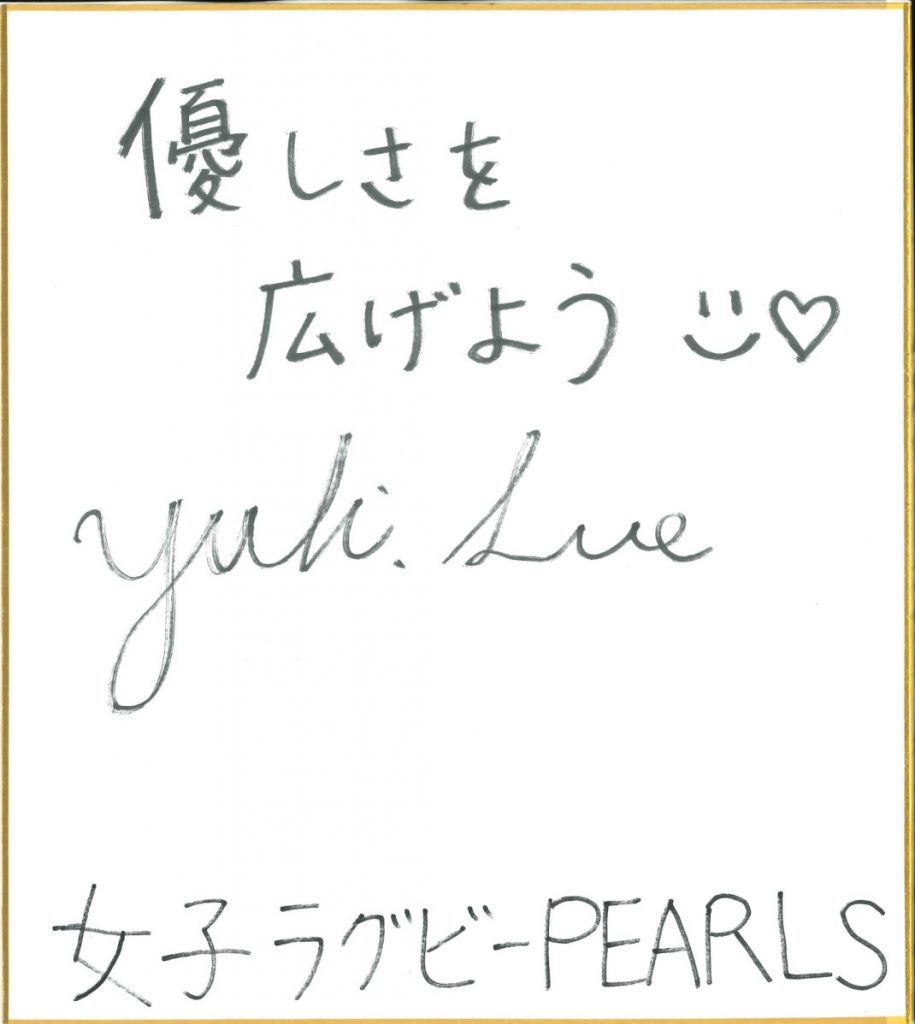 優しさを
広げよう
yuki. Sue
女子ラグビーPEARLS